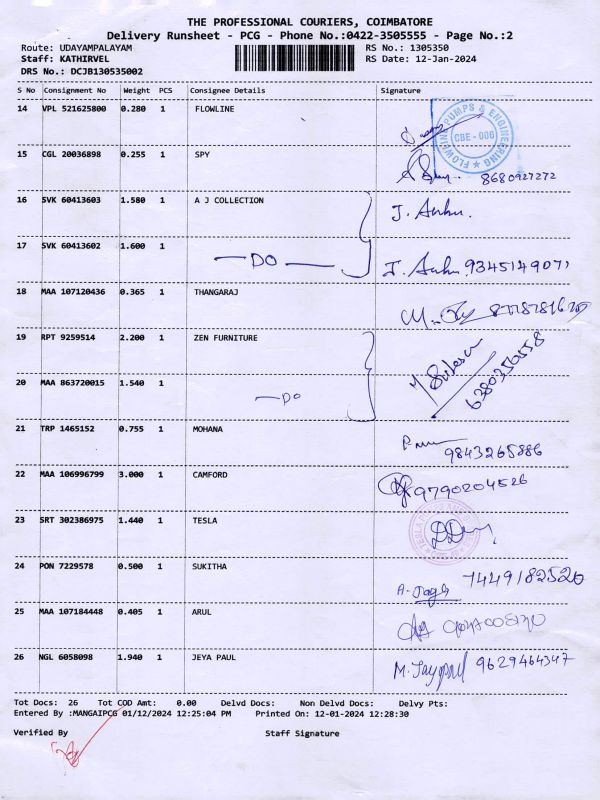 THE PROFESSIONAL COURIERS, COIMBATORE
Delivery Runsheet - PCG - Phone No.:0422-3505555 - Page No.:2
Route: UDAYAMPALAYAM RS No.: 1305350
Staff: KATHIRVEL RS Date: 12-Jan-2024
DRS No.: DCJB130535002
S No Consignment No Weight PCS Consignee Details Signature
14 VPL 521625800 0.280 1 FLOWLINE
PUMPS & ENGINEERING CBE - 006
15 CGL 20036898 0.255 1 SPY 8680927272
16 SVK 60413603 1.580 1 A J COLLECTION
17 SVK 60413602 1.600 1 -DO- 9345149071
18 MAA 107120436 0.365 1 THANGARAJ
19 RPT 9259514 2.200 1 ZEN FURNITURE
20 MAA 863720015 1.540 1 -DO 6380356558
21 TRP 1465152 0.755 1 MOHANA 9843265886
22 MAA 106996799 3.000 1 CAMFORD 9790204526
23 SRT 302386975 1.440 1 TESLA
24 PON 7229578 0.500 1 SUKITHA 7449182520
25 MAA 107184448 0.405 1 ARUL
26 NGL 6058098 1.940 1 JEYA PAUL M. Jaypaul 9629464347
Tot Docs: 26 Tot COD Amt: 0.00 Delvd Docs: Non Delvd Docs: Delvy Pts:
Entered By :MANGAIPCG 01/12/2024 12:25:04 PM Printed On: 12-01-2024 12:28:30
Verified By Staff Signature